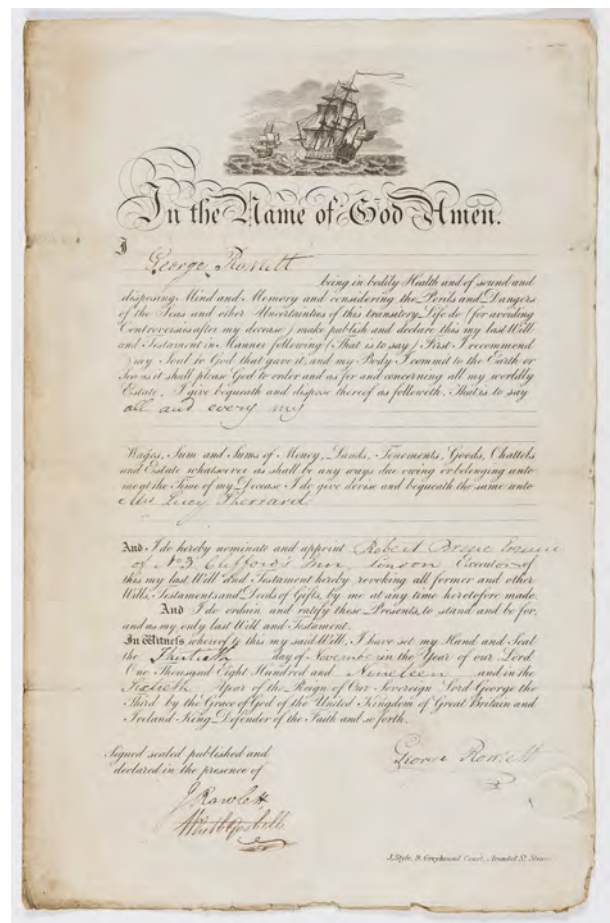 In the Name of God Amen.
I
George Rowlett
being in bodily Health and of sound and
disposing Mind and Memory and considering the Perils and Dangers
of the Seas and other Uncertainties of this transitory Life do (for avoiding
Controversies after my decease) make publish and declare this my last Will
and Testament in Manner following (that is to say) First I recommend
my Soul to God that gave it, and my Body I commit to the Earth or
Sea as it shall please God to order and as for and concerning all my worldly
Estate, I give bequeath and dispose thereof as followeth, That is to say
all and every my
Wages, Sum and Sums of Money, Lands, Tenements, Goods, Chattels
and Estate whatsoever as shall be any ways due owing or belonging unto
me at the Time of my Decease I do give devise and bequeath the same unto
Mrs Lucy Sherrard
And I do hereby nominate and appoint Robert
of No 3, Clifford's Inn, London, Executor of
this my last Will and Testament hereby revoking all former and other
Wills, Testaments and Deeds of Gifts, by me at any time heretofore made.
And I do ordain and ratify these Presents, to stand and be for,
and as my only last Will and Testament.
In Witness whereof to this my said Will, I have set my Hand and Seal
the Thirtieth day of November in the Year of our Lord
One Thousand Eight Hundred and Nineteen and in the
Sixtieth Year of the Reign of Our Sovereign Lord George the
Third by the Grace of God of the United Kingdom of Great Britain and
Ireland King Defender of the Faith and so forth.
Signed sealed published and
declared in the presence of
George Rowlett
J Rowlett
J. Style, 9, Greyhound Court, Arundel St. Strand